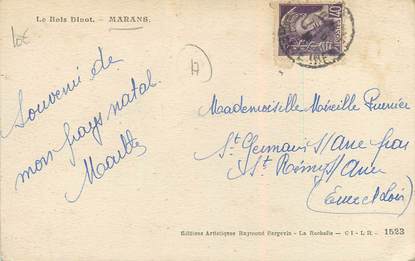 Le Bois Dinot. — MARANS.
10€
17
Souvenir de
mon pays natal.
Marthe
Mademoiselle Mireille Prunier
St Germain s/Avre par
St Rémy s/Avre
(Eure et Loir)
Editions Artistiques Raymond Bergevin - La Rochelle — C I - L R. - 1523